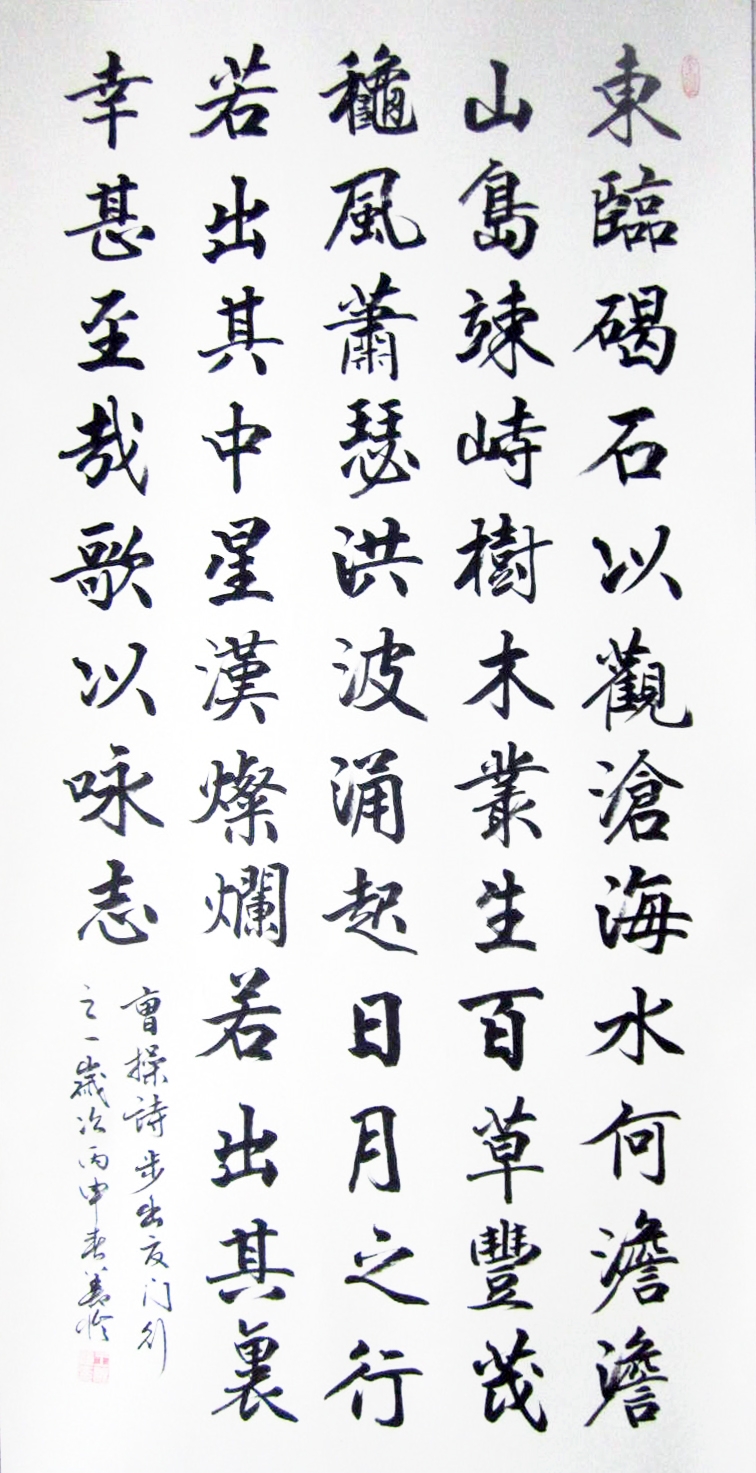 東臨碣石以觀滄海水何澹澹
山島竦峙樹木叢生百草豐茂
龝風蕭瑟洪波涌起日月之行
若出其中星漢燦爛若出其裏
幸甚至哉歌以咏志
曹操詩步出夏门行
之一歲次丙申春